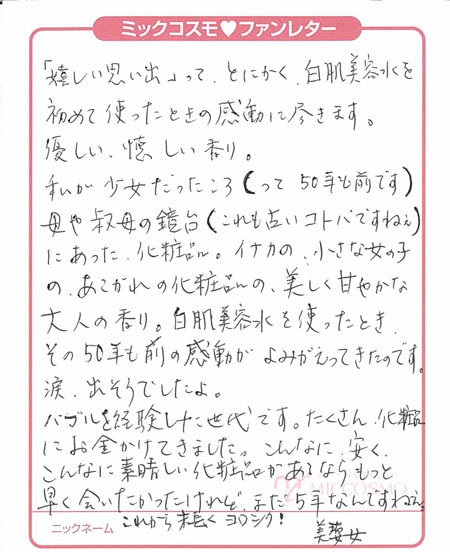 ミックコスモ♥ファンレター
「嬉しい思い出」って、とにかく、白肌美容水を
初めて使ったときの感動に尽きます。
優しい、懐しい香り。
私が少女だったころ(って50年も前です)
母や叔母の鏡台(これも古いコトバですねぇ)
にあった、化粧品。イナカの、小さな女の子
の、あこがれの化粧品の、美しく甘やかな
大人の香り。白肌美容水を使ったとき、
その50年も前の感動がよみがえってきたのです。
涙、出そうでしたよ。
バブルを経験した世代です。たくさん、化粧品
にお金かけてきました。こんなに、安く、
こんなに素晴しい化粧品があるならもっと
早く会いたかったけれど、まだ5年なんですねぇ。
MICCOSMO
これから末長くヨロシク!
ニックネーム 美婆女